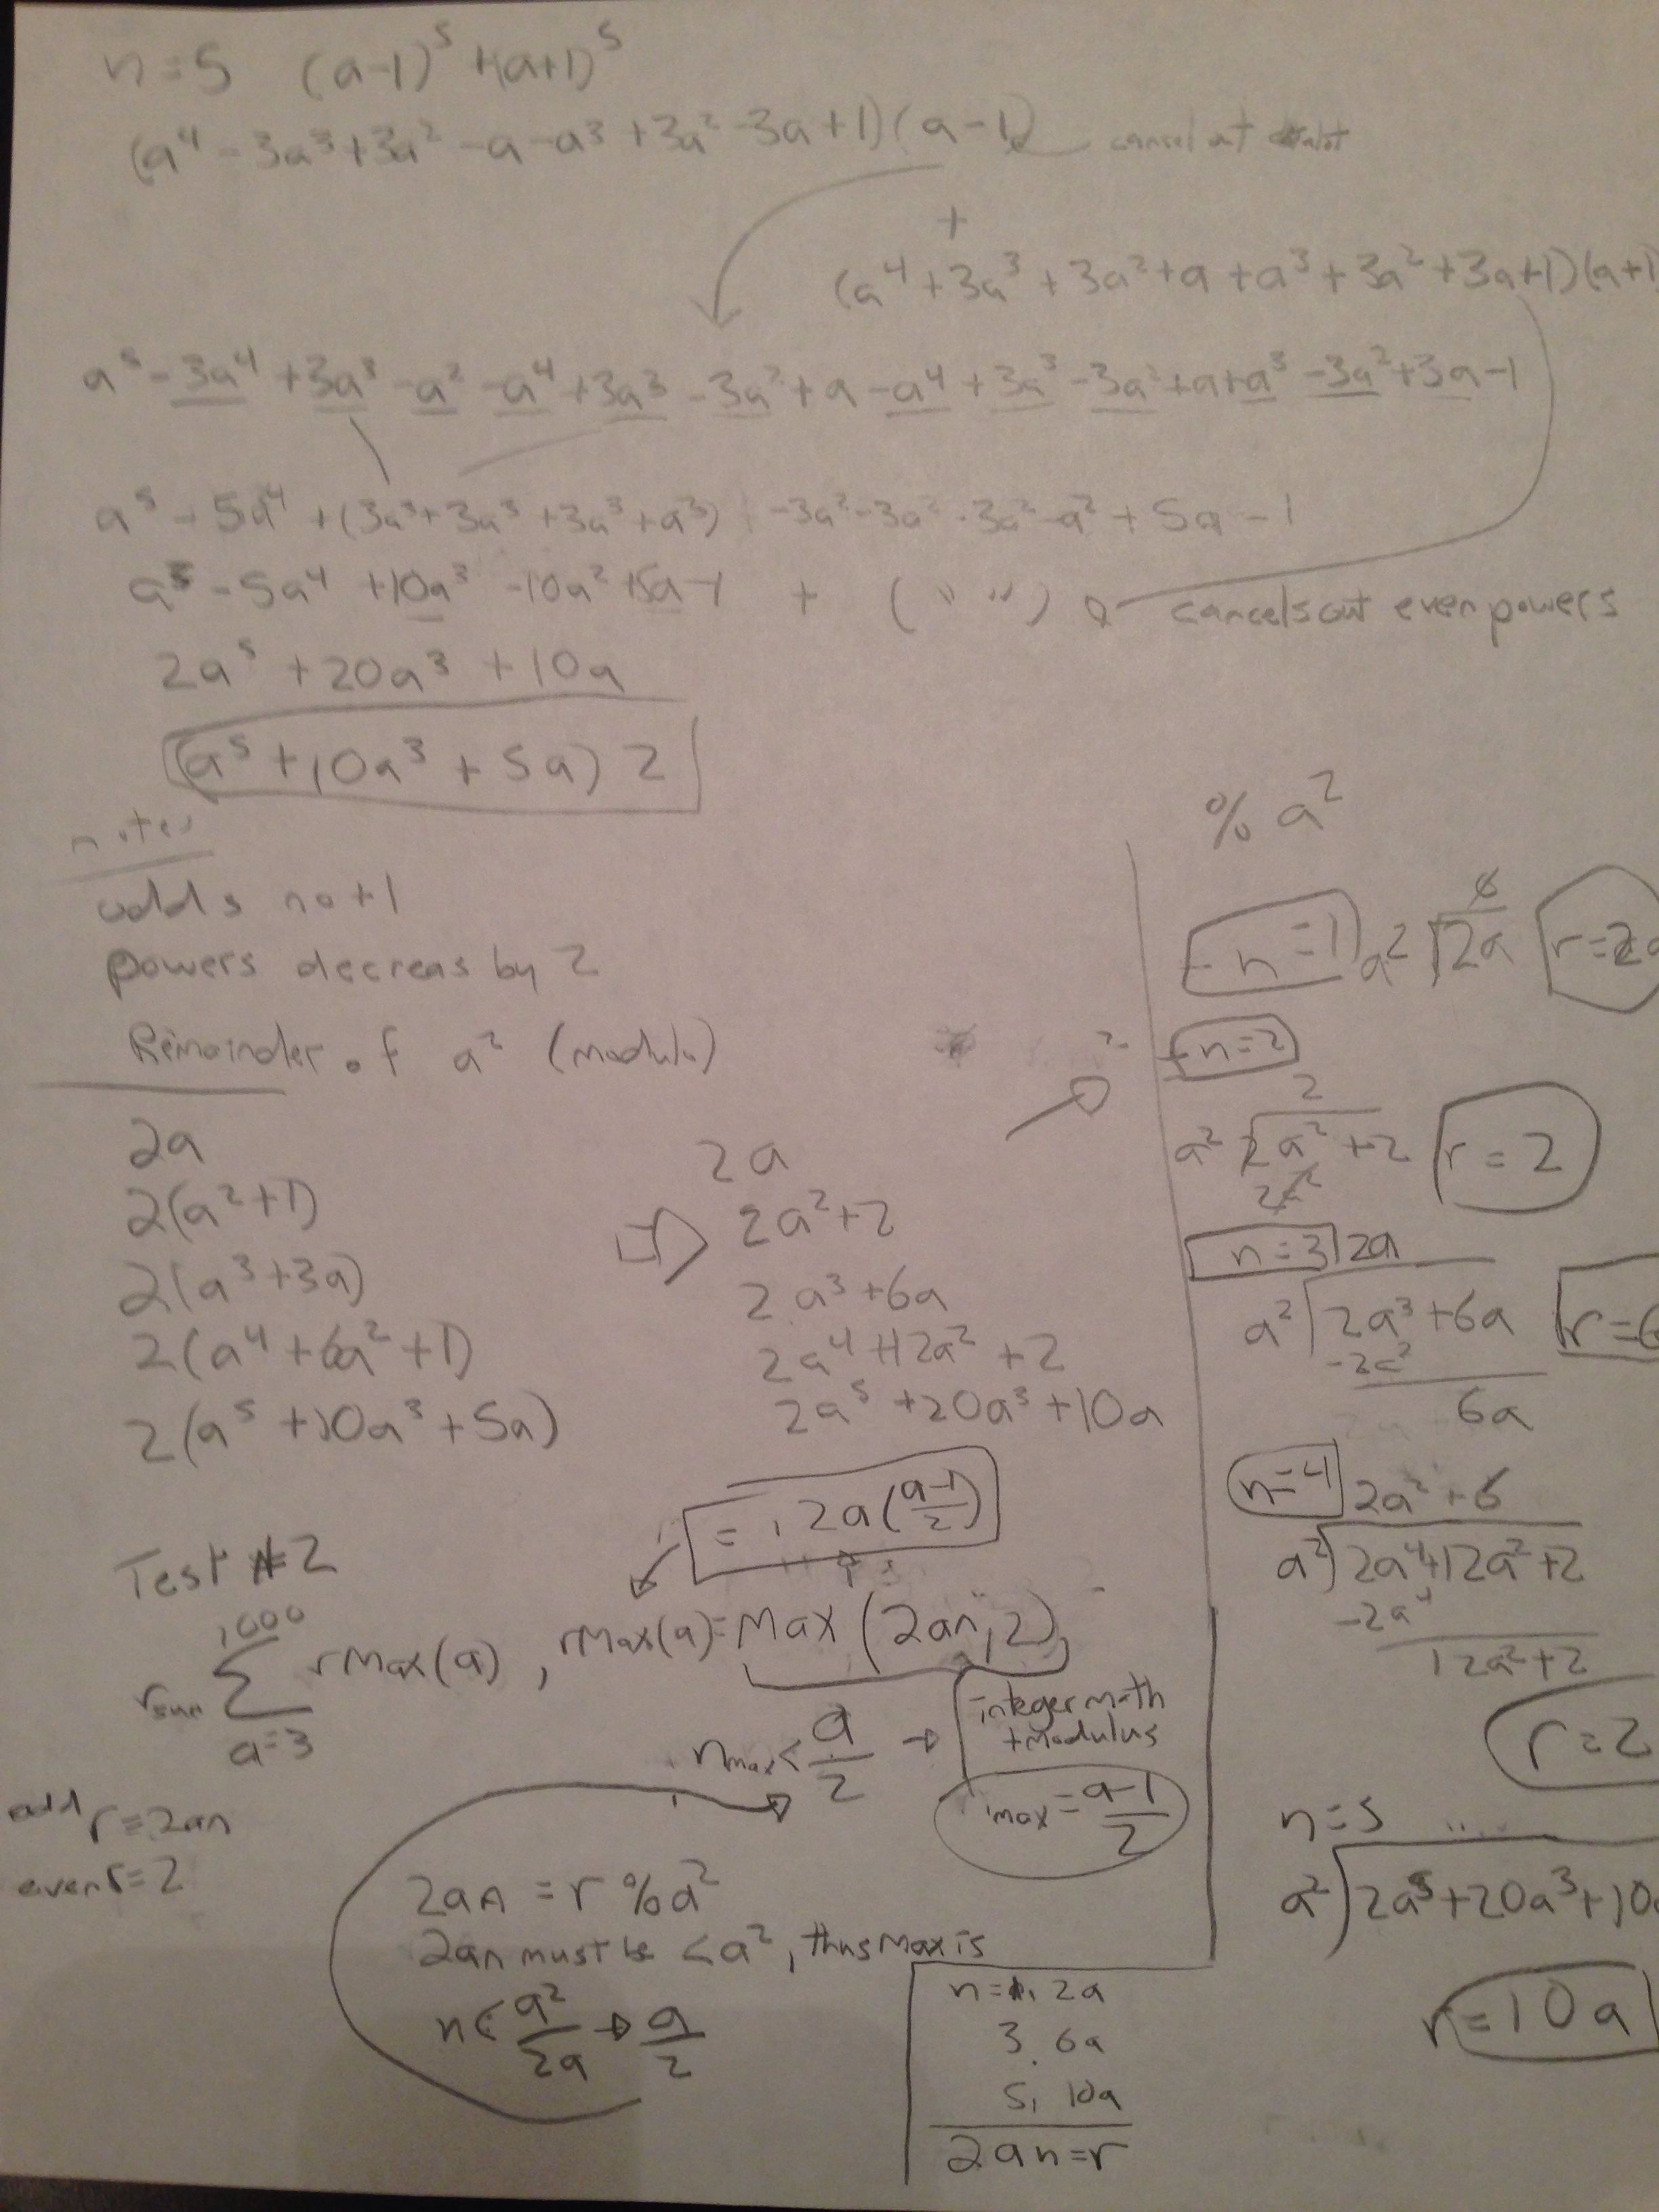 n=5 (a-1)⁵ +(a+1)⁵
(a⁴ - 3a³ + 3a² - a - a³ + 3a² - 3a + 1)(a-1) cancel out
+
(a⁴ + 3a³ + 3a² + a + a³ + 3a² + 3a + 1)(a+1
a⁵ - 3a⁴ + 3a³ - a² - a⁴ + 3a³ - 3a² + a - a⁴ + 3a³ - 3a² + a + a³ - 3a² + 3a - 1
a⁵ - 5a⁴ + (3a³ + 3a³ + 3a³ + a³) - 3a² - 3a² - 3a² - a² + 5a - 1
a⁵ - 5a⁴ + 10a³ - 10a² + 5a - 1 + ( " " ) cancels out even powers
2a⁵ + 20a³ + 10a
(a⁵ + 10a³ + 5a) 2
notes
odds no +1
powers decreas by 2
Remainder of a² (modulo)
2a
2(a²+1)
2(a³+3a)
2(a⁴ + 6a² + 1)
2(a⁵ + 10a³ + 5a)
2a
2a²+2
2a³+6a
2a⁴+12a² +2
2a⁵ +20a³+10a
= 2a(a-1/2)
Test #2
rsum 1000 Σ a=3 rmax(a), rmax(a)= Max (2an, 2)
nmax < a/2 →
integer math
+modulus
max = a-1/2
odd r=2an
even r=2
2an = r % a²
2an must be < a², thus max is
n < a²/2a → a/2
n=1, 2a
3, 6a
5, 10a
2an=r
% a²
n=1 a² 2a r=2a
n=2
2
a² 2a²+2 r=2
2a²
n=3 2a
a² 2a³+6a r=6
-2a²
6a
n=4 2a²+6
a² 2a⁴+12a²+2
-2a⁴
12a²+2
r=2
n=5 ...
a² 2a⁵+20a³+10a
r=10a